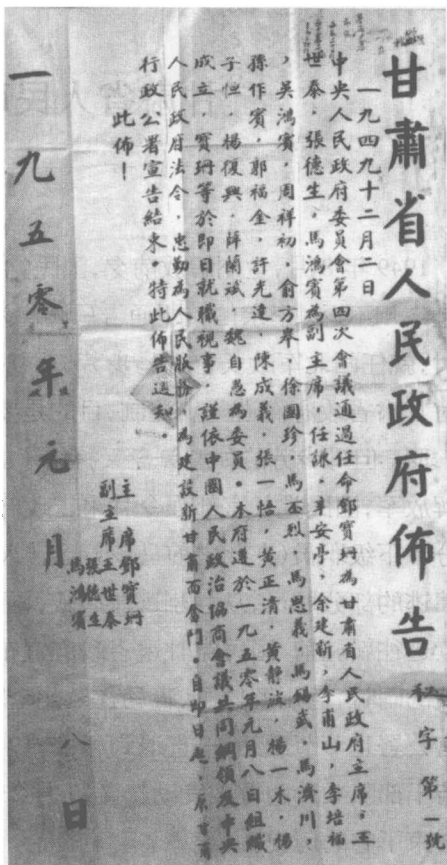 甘肅省人民政府佈告
秘字第一號
一九四九十二月二日
中央人民政府委員會第四次會議通過任命鄧寶珊為甘肅省人民政府主席，王
世泰，張德生，馬鴻賓為副主席，任謙，辛安亭，余建新，李甫山，李培福
，吳鴻賓，周祥初，俞方皋，徐國珍，馬丕烈，馬思義，馬錫武，馬濟川，
孫作賓，郭福金，許光達，陳成義，張一悟，黃正清，黃靜波，楊一木，楊
子恒，楊復興，薛蘭斌，魏自愚為委員。本府遵於一九五零年元月八日組織
成立，寶珊等於即日就職視事，謹依中國人民政治協商會議共同綱領及中央
人民政府法令，忠勤為人民服務，為建設新甘肅而奮鬥。自即日起，原甘肅
行政公署宣告結束。特此佈告週知。
此佈！
主席鄧寶珊
副主席王世泰
張德生
馬鴻賓
一九五零年元月八日